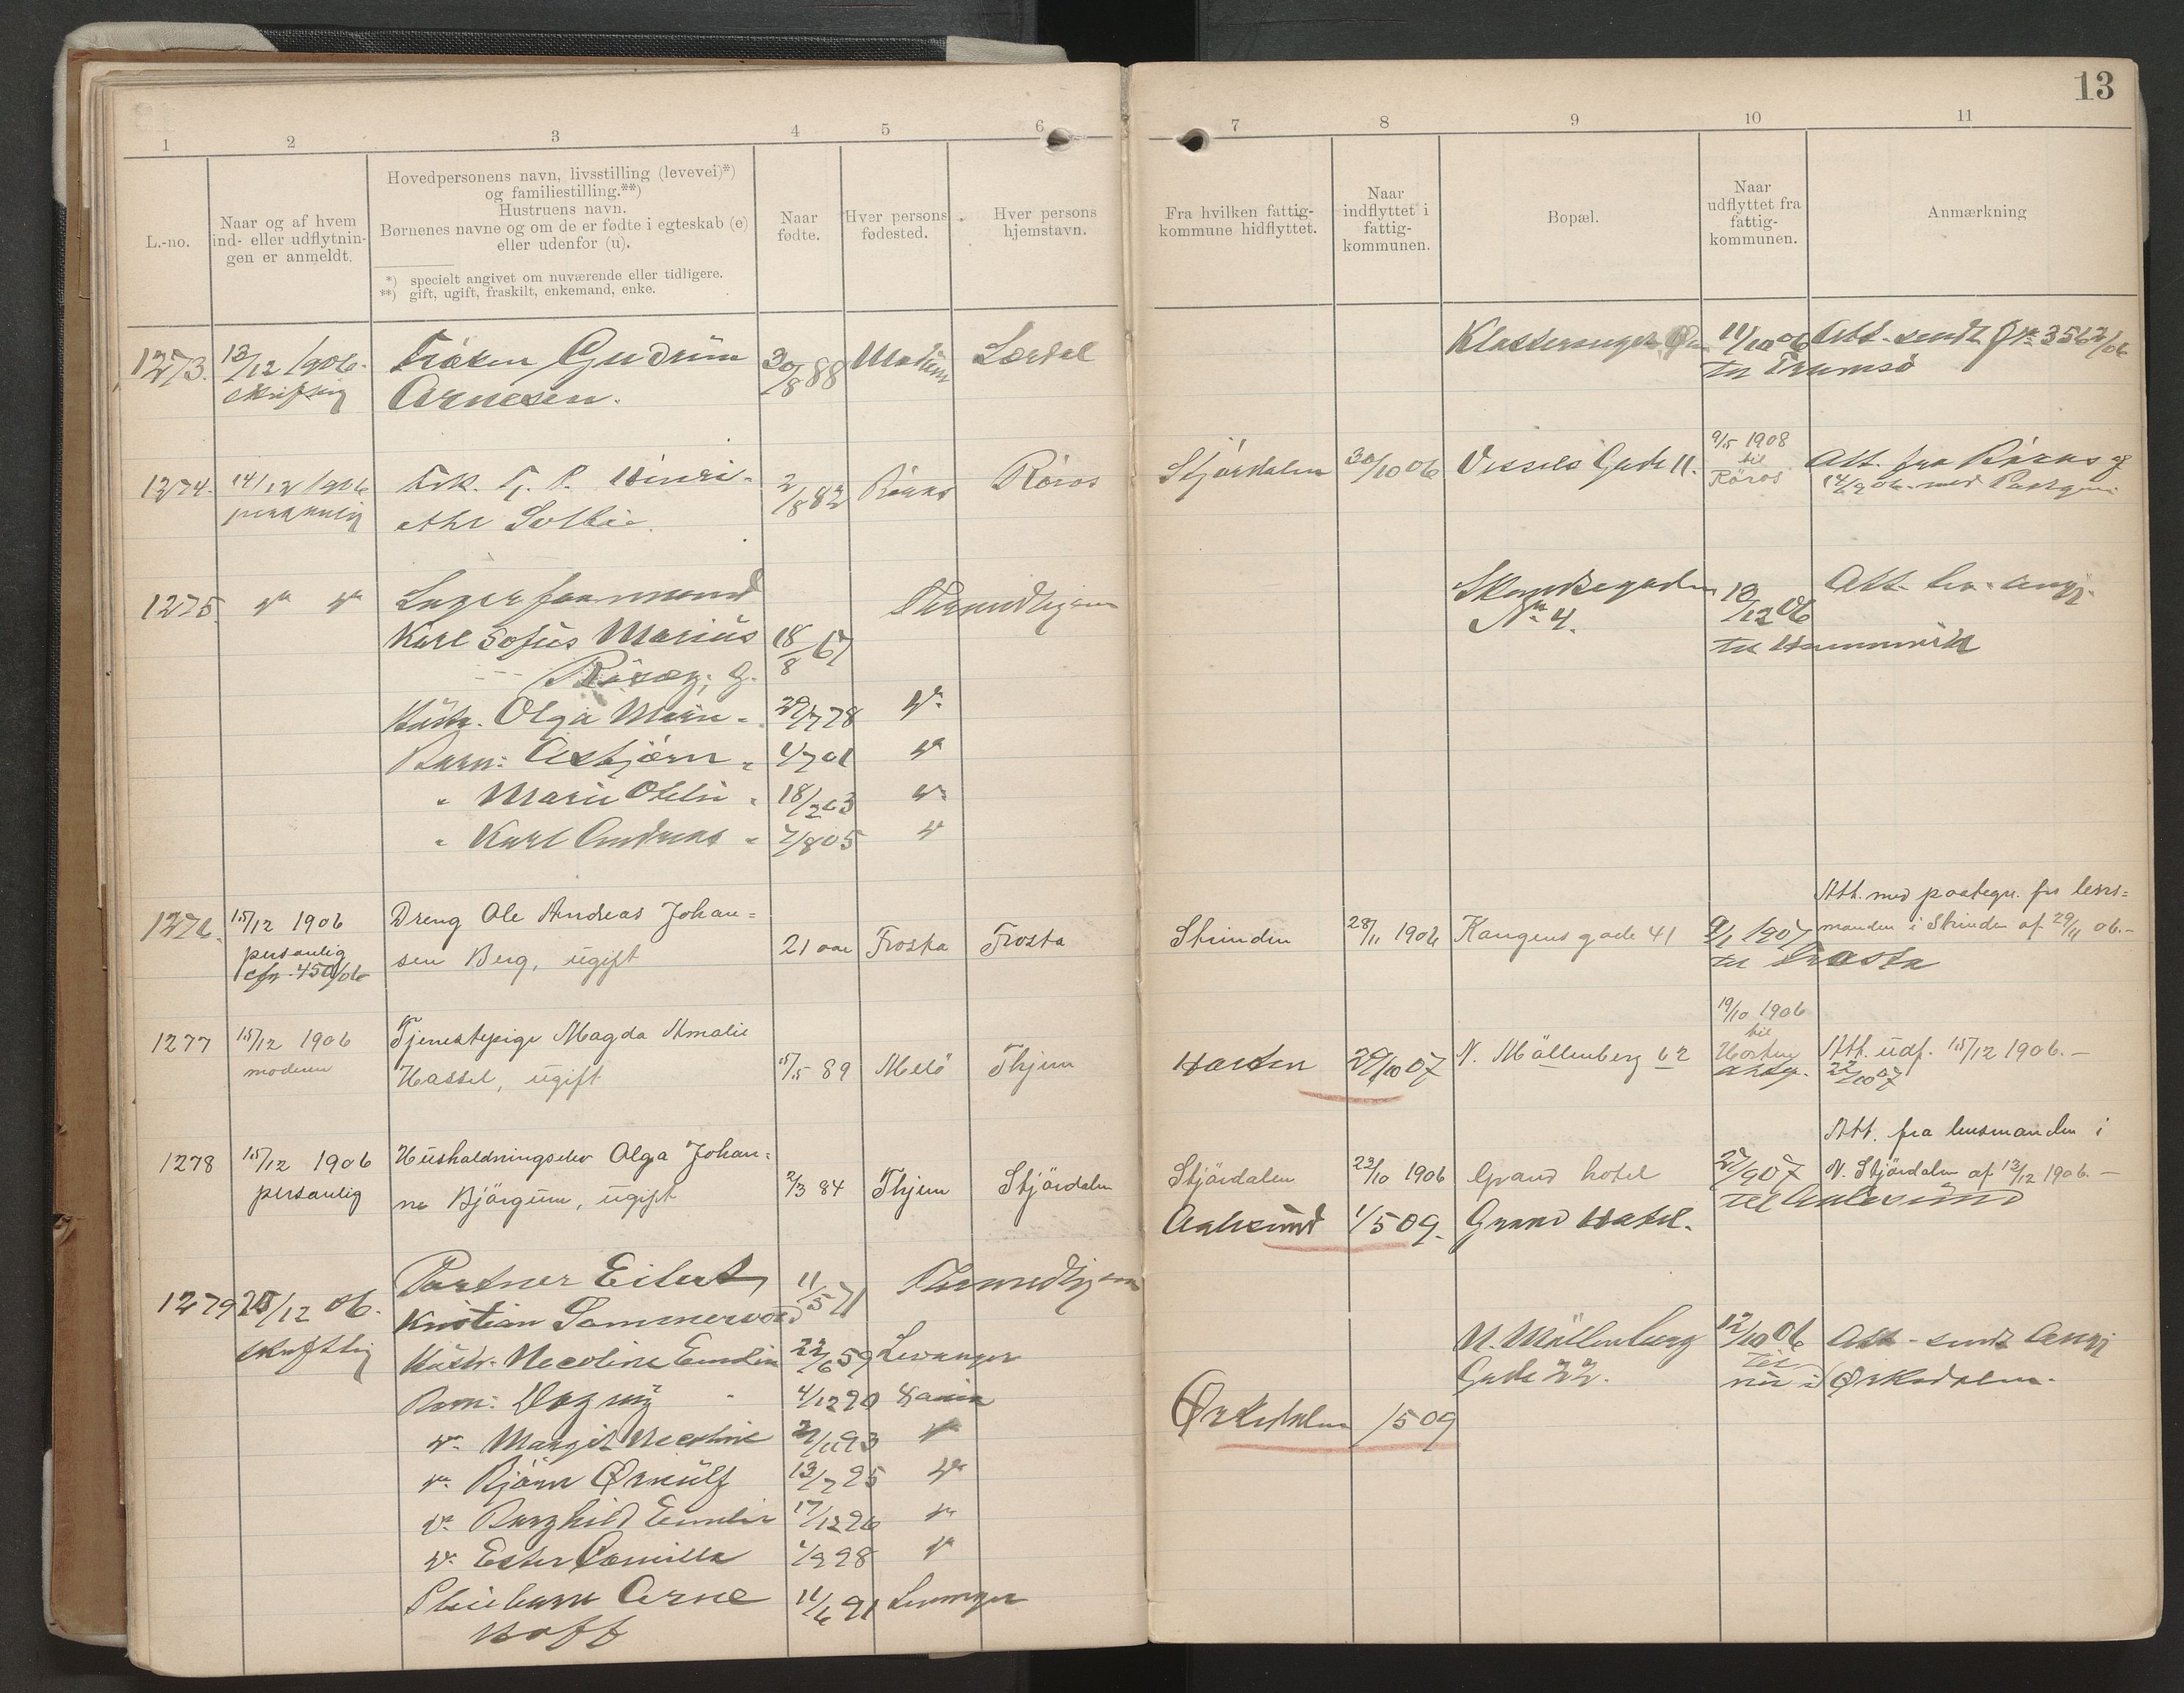 13
1 2 3 4 5 6 7 8 9 10 11
L.-no.
Naar og af hvem
ind- eller udflytnin-
gen er anmeldt.
Hovedpersonens navn, livsstilling (levevei)*)
og familiestilling.**)
Hustruens navn.
Børnenes navne og om de er fødte i egteskab (e)
eller udenfor (u).
*) specielt angivet om nuværende eller tidligere.
**) gift, ugift, fraskilt, enkemand, enke.
Naar
fødte.
Hver persons
fødested.
Hver persons
hjemstavn.
Fra hvilken fattig-
kommune hidflyttet.
Naar
indflyttet i
fattig-
kommunen.
Bopæl.
Naar
udflyttet fra
fattig-
kommunen.
Anmærkning
1273. 13/12 1906. Frøken Gudrun 30/8 88 Lærdal 11/10 06 Att. sendt
skriftlig Arnesen. til Tromsø
1274. 14/12 1906 Frk. 2/8 82 Røros Røros Stjørdalen 30/10 06 Vessels Gade 11. 9/5 1908 Att. fra Røros
personlig til
Røros
1275. Lagerformand Throndhjem 10/12 06 Att.
Karl Sofus Marius 18/8 67 No. 4. til Hommelvik
Hustr. Olga Marie 29/7 78
Barn: Asbjørn 4/7 01
" Marie Otelie 18/2 03
" Karl Andreas 7/8 05
1276. 15/12 1906 Dreng Ole Andreas Johan= Att. med paategn. fra lens=
personlig sen Berg, ugift 21 aar Frosta Frosta Strinden 28/11 1906 Kongens gade 41 9/1 1907 manden i Strinden af 29/11 06.-
cfr. 450/06 til Frosta
1277 15/12 1906 Tjenestepige Magda Amalie 19/10 1906
moderen Hassel, ugift 15/5 89 Melø Thjem Horten 29/10 07 N. Møllenberg 62 til Horten Att. udf. 15/12 1906.-
22/10 07
1278 15/12 1906 Husholdningselev Olga Johan= Att. fra lensmanden i
personlig ne Bjørgum, ugift 2/3 84 Thjem Stjørdalen Stjørdalen 23/10 1906 Grand hotel 27/9 07 N. Stjørdalen af 13/12 1906.-
Aalesund 1/5 09. Grand Hotel. til Aalesund
1279 /12 06. Portner Eilert 11/5 71 Throndhjem
skriftlig Kristian Sommervold
Hustr. Nicoline Emelie 22/6 59 Levanger N. Møllenberg 12/10 06 Att. sendt
Barn: Dagny 4/12 90 Gade 22. Ørkedalen.
Margit Nicoline Ørkedalen 1/5 09
Bjørn Ørnulf 13/7 95
Borghild Emelie 17/12 96
Ester Camilla 1/9 98
Pleiebarn Arne 11/6 91 Levanger
Hoff